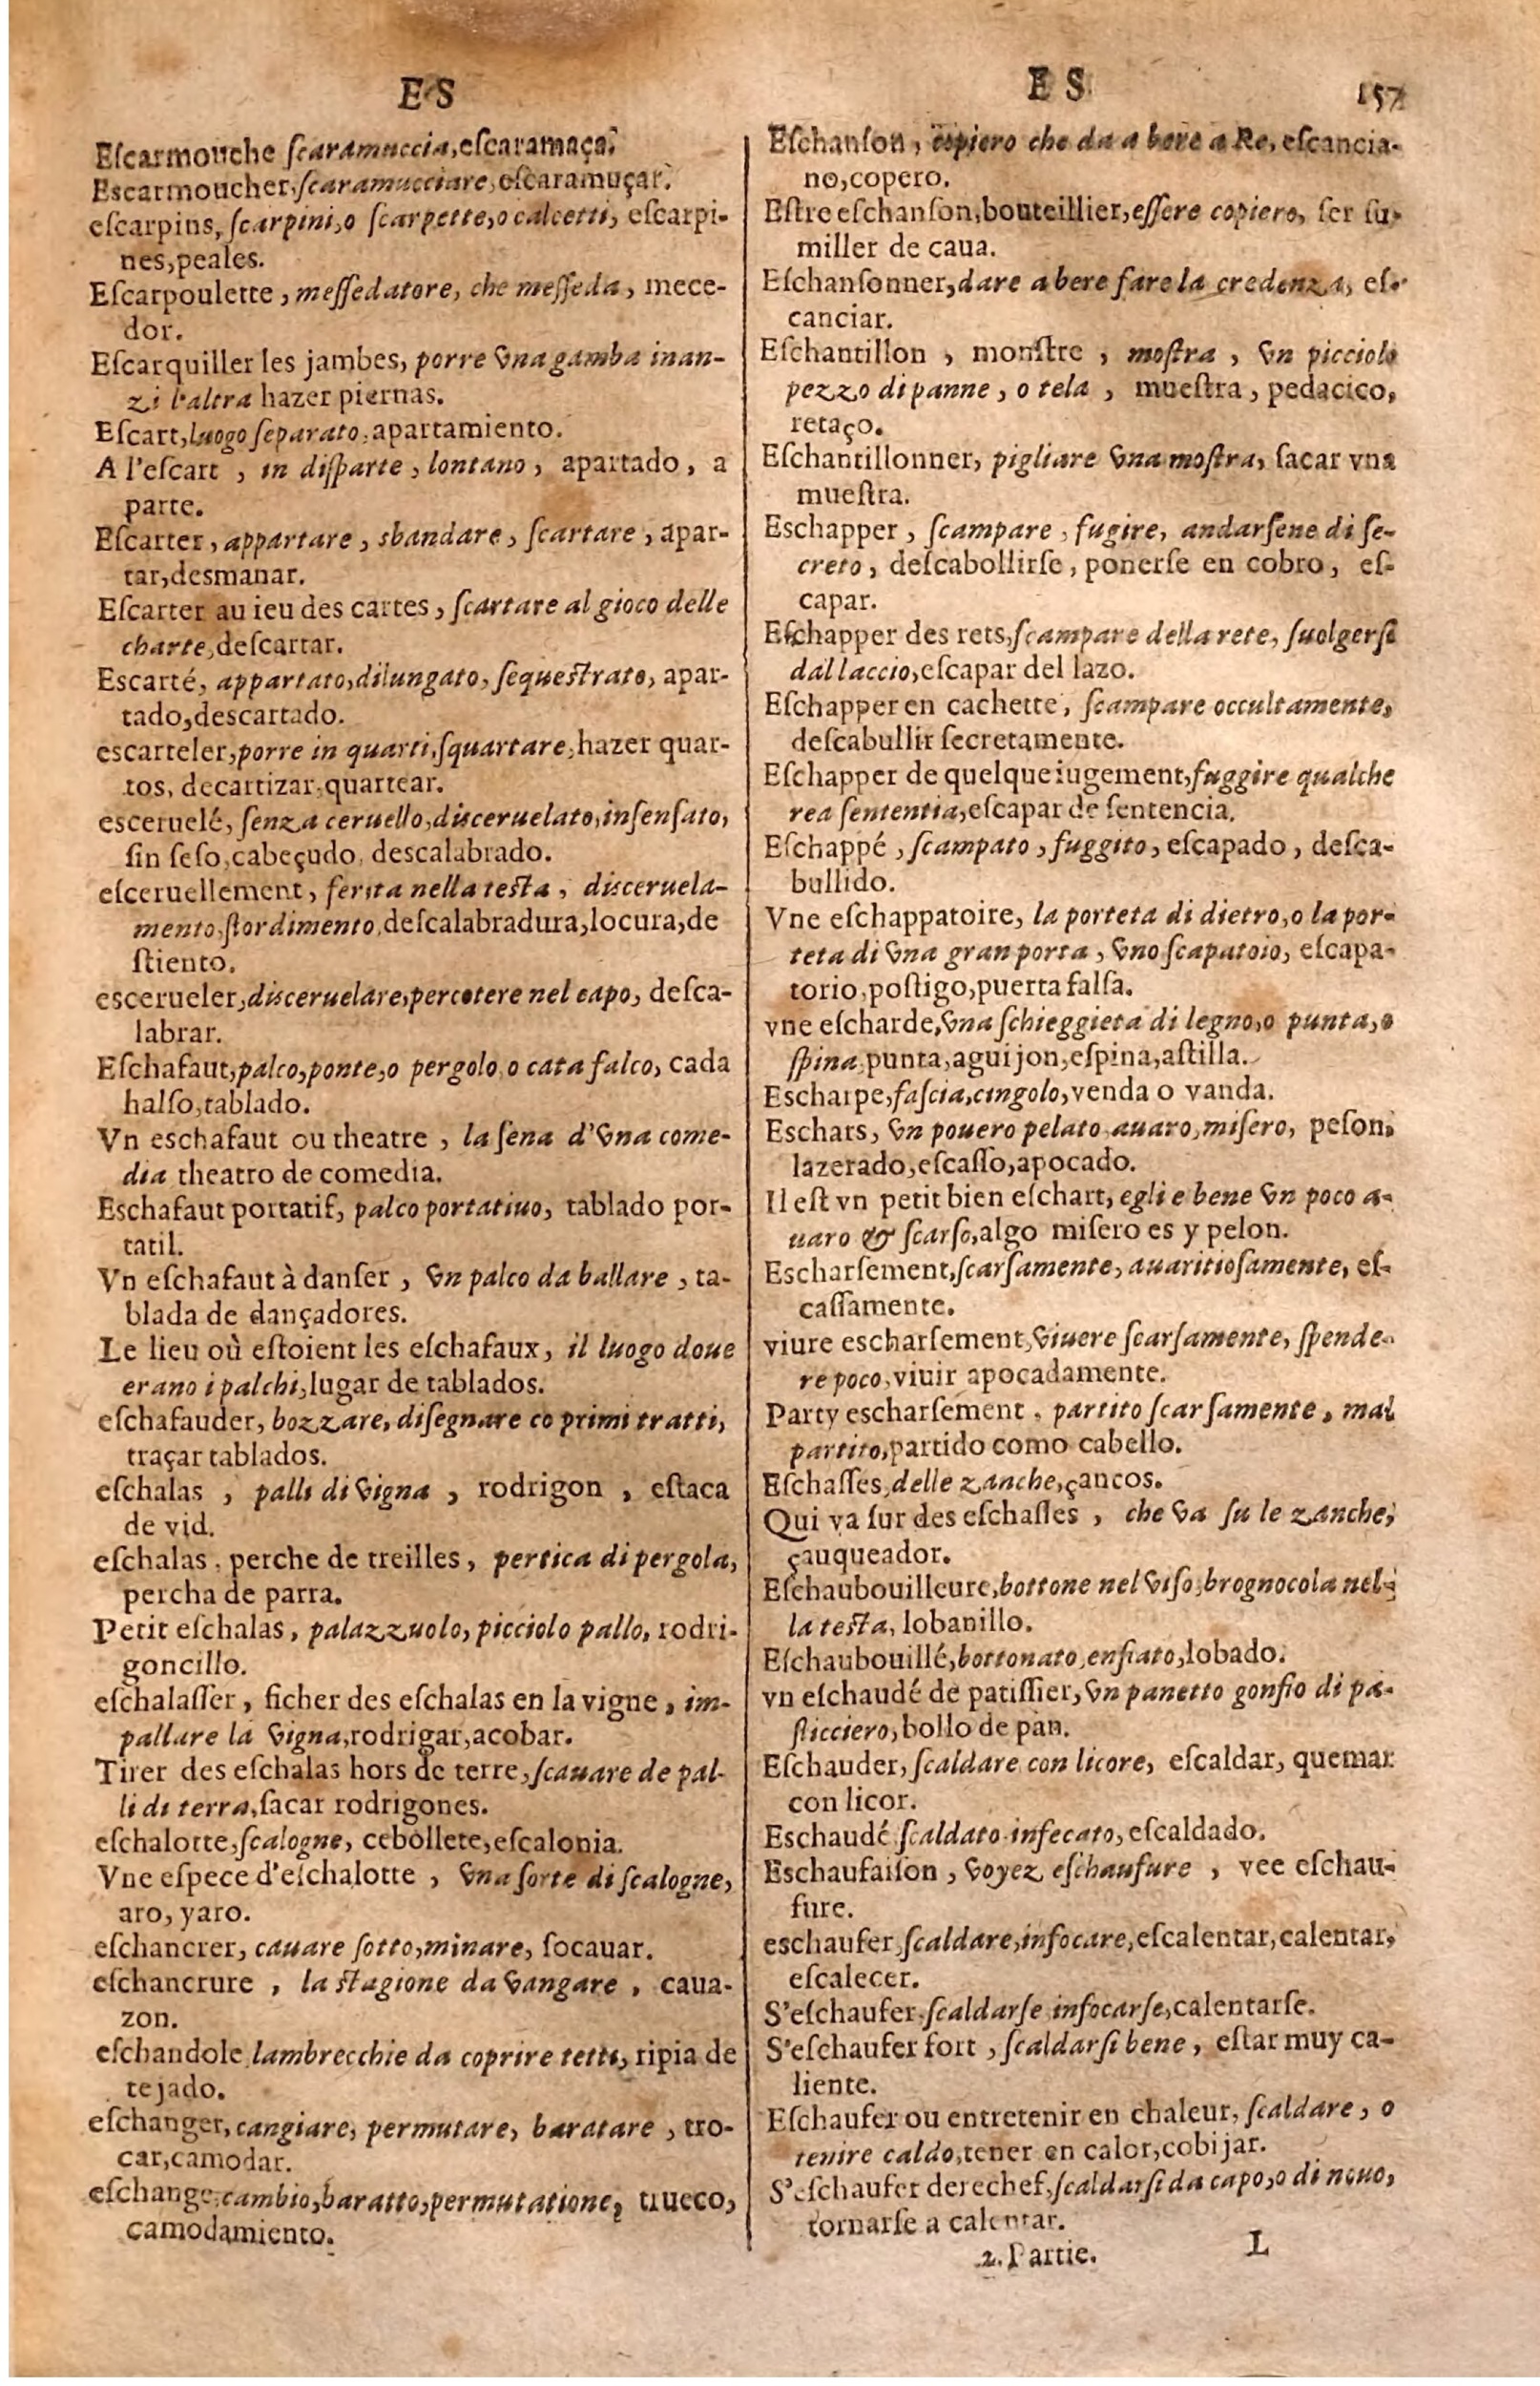 E S
Eſcarmouche ſcaramuccia, eſcaramaça.
Escarmoucher, ſcaramucciare, eſcaramuçar.
eſcarpins, ſcarpini, o ſcarpette, o calcetti, eſcarpi-
nes, peales.
Eſcarpoulette, meſſedatore, che meſſeda, mece-
dor.
Eſcarquiller les jambes, porre vna gamba inan-
zi l'altra hazer piernas.
Eſcart, luogo ſeparato, apartamiento.
A l'eſcart, in diſparte, lontano, apartado, a
parte.
Eſcarter, appartare, sbandare, ſcartare, apar-
tar, desmanar.
Eſcarter au ieu des cartes, ſcartare al gioco delle
charte, deſcartar.
Escarté, appartato, dilungato, ſequeſtrato, apar-
tado, descartado.
escarteler, porre in quarti, ſquartare, hazer quar-
tos, decartizar, quartear.
esceruelé, ſenza ceruello, disceruelato, inſenſato,
ſin ſeſo, cabeçudo, descalabrado.
eſceruellement, ferita nella teſta, disceruela-
mento, ſtordimento, deſcalabradura, locura, de
ſtiento.
escerueler, disceruelare, percotere nel capo, deſca-
labrar.
Eſchafaut, palco, ponte, o pergolo, o catafalco, cada
halſo, tablado.
Vn eschafaut ou theatre, la ſena d'vna come-
dia theatro de comedia.
Eschafaut portatif, palco portatiuo, tablado por-
tatil.
Vn eſchafaut à danſer, vn palco da ballare, ta-
blada de dançadores.
Le lieu où eſtoient les eſchafaux, il luogo doue
erano i palchi, lugar de tablados.
eſchafauder, bozzare, diſegnare co primi tratti,
traçar tablados.
eſchalas, palli di vigna, rodrigon, eſtaca
de vid.
eſchalas, perche de treilles, pertica di pergola,
percha de parra.
Petit eſchalas, palazzuolo, picciolo pallo, rodri-
goncillo.
eſchalaſſer, ficher des eſchalas en la vigne, im-
pallare la vigna, rodrigar, acobar.
Tirer des eſchalas hors de terre, ſcauare de pal-
li di terra, ſacar rodrigones.
eſchalotte, ſcalogne, cebollete, eſcalonia.
Vne eſpece d'eſchalotte, vna ſorte di ſcalogne,
aro, yaro.
eſchancrer, cauare ſotto, minare, ſocauar.
eſchancrure, la ſtagione da vangare, caua-
zon.
eſchandole lambrecchie da coprire tetti, ripia de
tejado.
eſchanger, cangiare, permutare, baratare, tro-
car, camodar.
eſchange, cambio, baratto, permutatione, trueco,
camodamiento.
E S 157
Eſchanſon, copiero che da a bere a Re, eſcancia-
no, copero.
Eſtre eſchanſon, bouteillier, eſſere copiero, ſer ſu-
miller de caua.
Eſchanſonner, dare a bere fare la credenza, eſ-
canciar.
Eſchantillon, monſtre, moſtra, vn picciolo
pezzo di panne, o tela, mueſtra, pedacico,
retaço.
Eſchantillonner, pigliare vna moſtra, ſacar vna
mueſtra.
Eschapper, ſcampare, fugire, andarſene di ſe-
creto, deſcabollirſe, ponerſe en cobro, eſ-
capar.
Eſchapper des rets, ſcampare della rete, ſuolgerſi
dal laccio, eſcapar del lazo.
Eſchapper en cachette, ſcampare occultamente,
deſcabullir ſecretamente.
Eſchapper de quelque iugement, fuggire qualche
rea ſententia, eſcapar de ſentencia.
Eſchappé, ſcampato, fuggito, eſcapado, deſca-
bullido.
Vne eſchappatoire, la porteta di dietro, o la por-
teta di vna gran porta, vno ſcapatoio, eſcapa-
torio, poſtigo, puerta falſa.
vne eſcharde, vna ſchieggieta di legno, o punta, o
ſpina, punta, aguijon, eſpina, aſtilla.
Escharpe, faſcia, cingolo, venda o vanda.
Eschars, vn pouero pelato auaro, miſero, peſon,
lazerado, eſcaſſo, apocado.
Il eſt vn petit bien eſchart, egli e bene vn poco a-
uaro & ſcarſo, algo miſero es y pelon.
Eſcharſement, ſcarſamente, auaritioſamente, eſ-
caſſamente.
viure escharſement, viuere ſcarſamente, ſpende-
re poco, viuir apocadamente.
Party escharſement, partito ſcarſamente, mal
partito, partido como cabello.
Eſchaſſes, delle zanche, çancos.
Qui va ſur des eſchaſſes, che va ſu le zanche,
çauqueador.
Eſchaubouilleure, bottone nel viſo, brognocola nel-
la teſta, lobanillo.
Eſchaubouillé, bottonato, enfiato, lobado.
vn eſchaudé de patiſſier, vn panetto gonfio di pa-
ſticciero, bollo de pan.
Eſchauder, ſcaldare con licore, eſcaldar, quemar
con licor.
Eschaudé, ſcaldato infecato, eſcaldado.
Eschaufaiſon, voyez eſchaufure, vee eſchau-
fure.
eschaufer, ſcaldare, infocare, eſcalentar, calentar,
eſcalecer.
S'eſchaufer, ſcaldarſe infocarſe, calentarſe.
S'eſchaufer fort, ſcaldarſi bene, eſtar muy ca-
liente.
Eſchaufer ou entretenir en chaleur, ſcaldare, o
tenire caldo, tener en calor, cobijar.
S'eſchaufer derechef, ſcaldarſi da capo, o di nouo,
tornarſe a calentar.
2. Partie. L